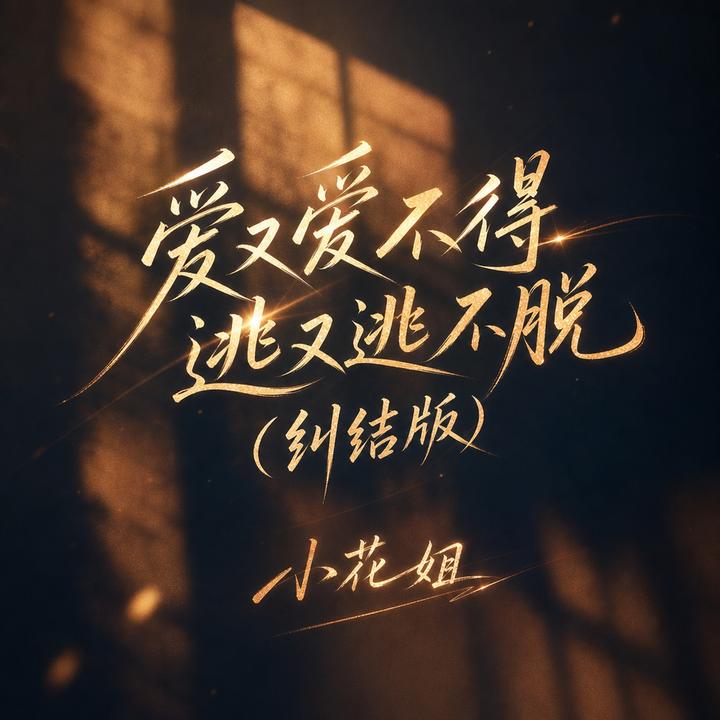 爱又爱不得
逃又逃不脱
（纠结版）
小花姐